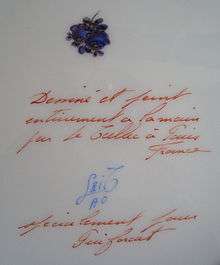 Dessiné et peint
entièrement à la main
par Le Tallec à Paris
France
spécialement pour
Puiforcat